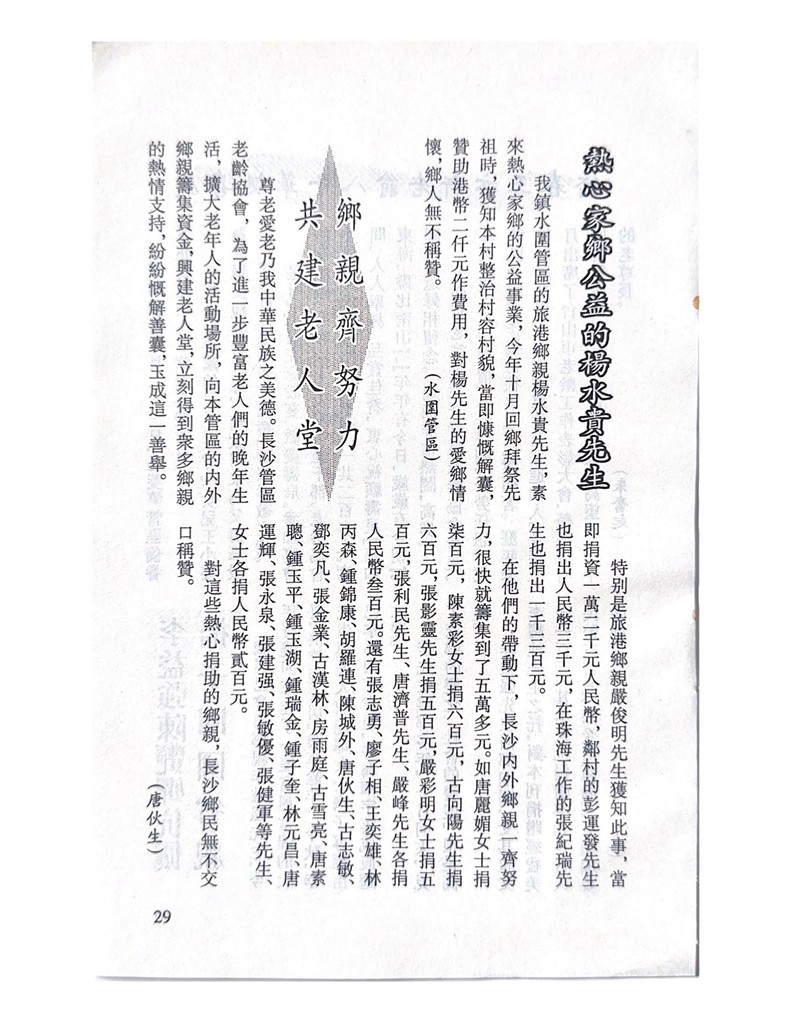 熱心家鄉公益的楊水貴先生
我鎮水圍管區的旅港鄉親楊水貴先生，素
來熱心家鄉的公益事業，今年十月回鄉拜祭先
祖時，獲知本村整治村容村貌，當即慷慨解囊，
贊助港幣二仟元作費用，對楊先生的愛鄉情
懷，鄉人無不稱贊。
（水圍管區）
鄉親齊努力
共建老人堂
尊老愛老乃我中華民族之美德。長沙管區
老齡協會，為了進一步豐富老人們的晚年生
活，擴大老年人的活動場所，向本管區的內外
鄉親籌集資金，興建老人堂，立刻得到衆多鄉親
的熱情支持，紛紛慨解善囊，玉成這一善舉。
特別是旅港鄉親嚴俊明先生獲知此事，當
即捐資一萬二千元人民幣，鄰村的彭運發先生
也捐出人民幣三千元，在珠海工作的張紀瑞先
生也捐出一千三百元。
在他們的帶動下，長沙內外鄉親一齊努
力，很快就籌集到了五萬多元。如唐麗媚女士捐
柒百元，陳素彩女士捐六百元，古向陽先生捐
六百元，張影靈先生捐五百元，嚴彩明女士捐五
百元，張利民先生、唐濟普先生、嚴峰先生各捐
人民幣叁百元。還有張志勇、廖子相、王奕雄、林
丙森、鍾錦康、胡羅連、陳城外、唐伙生、古志敏、
鄧奕凡、張金業、古漢林、房雨庭、古雪亮、唐素
聰、鍾玉平、鍾玉湖、鍾瑞金、鍾子奎、林元昌、唐
運輝、張永泉、張建强、張敏優、張健軍等先生、
女士各捐人民幣貳百元。
對這些熱心捐助的鄉親，長沙鄉民無不交
口稱贊。
（唐伙生）
29